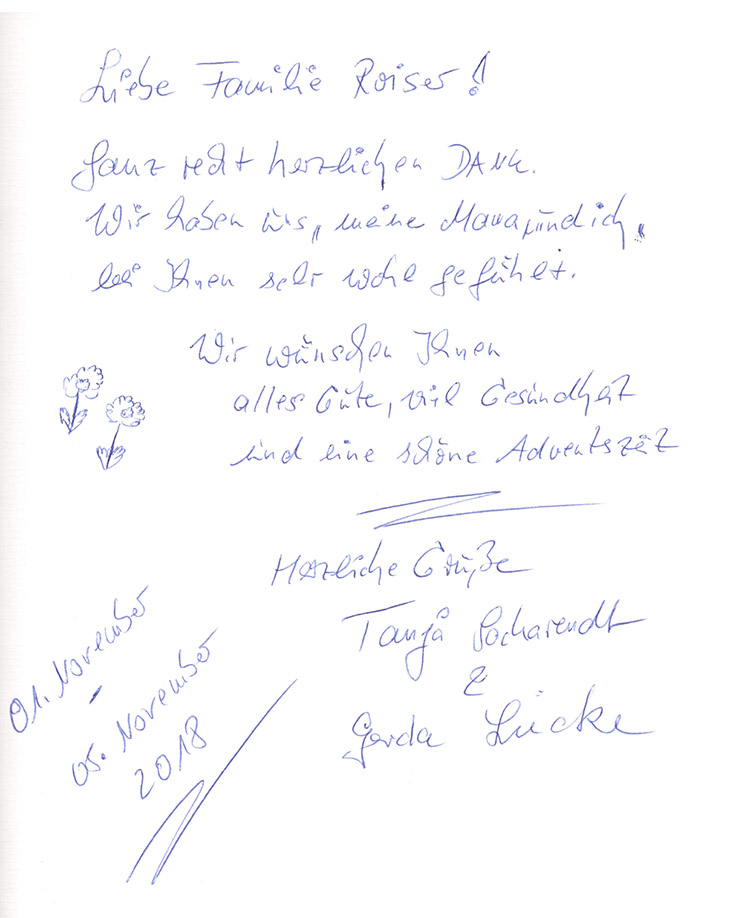 Liebe Familie Roiser!
Ganz recht herzlichen DANK.
Wir haben uns, meine Mama und ich,
bei Ihnen sehr wohl gefühlt.
Wir wünschen Ihnen
alles Gute, viel Gesundheit
und eine schöne Adventszeit
Herzliche Grüße
Tanja
&
Gerda Lücke
01. November
-
05. November
2018